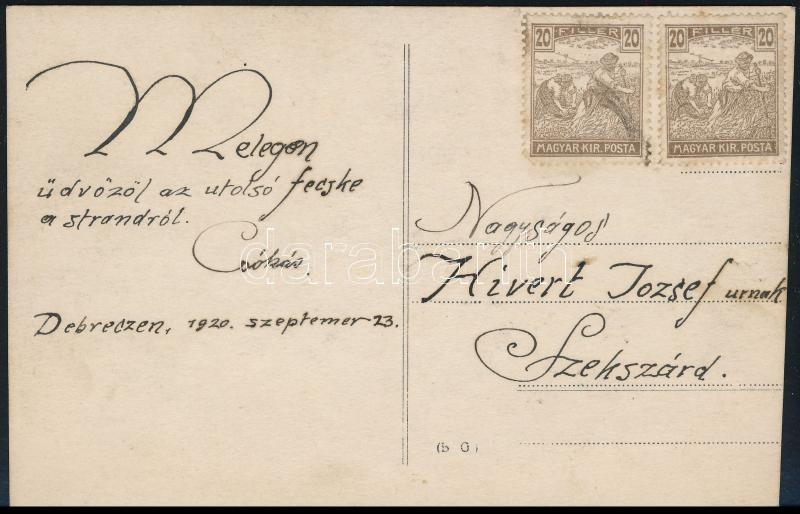 Melegen
üdvözöl az utolsó fecske
a strandról.
Debreczen, 1920. szeptemer 23.
20 FILLÉR 20
MAGYAR KIR. POSTA
20 FILLÉR 20
MAGYAR KIR. POSTA
Nagyságos
Hivert Jozsef urnak
Szekszárd.
(b G)
darabanth